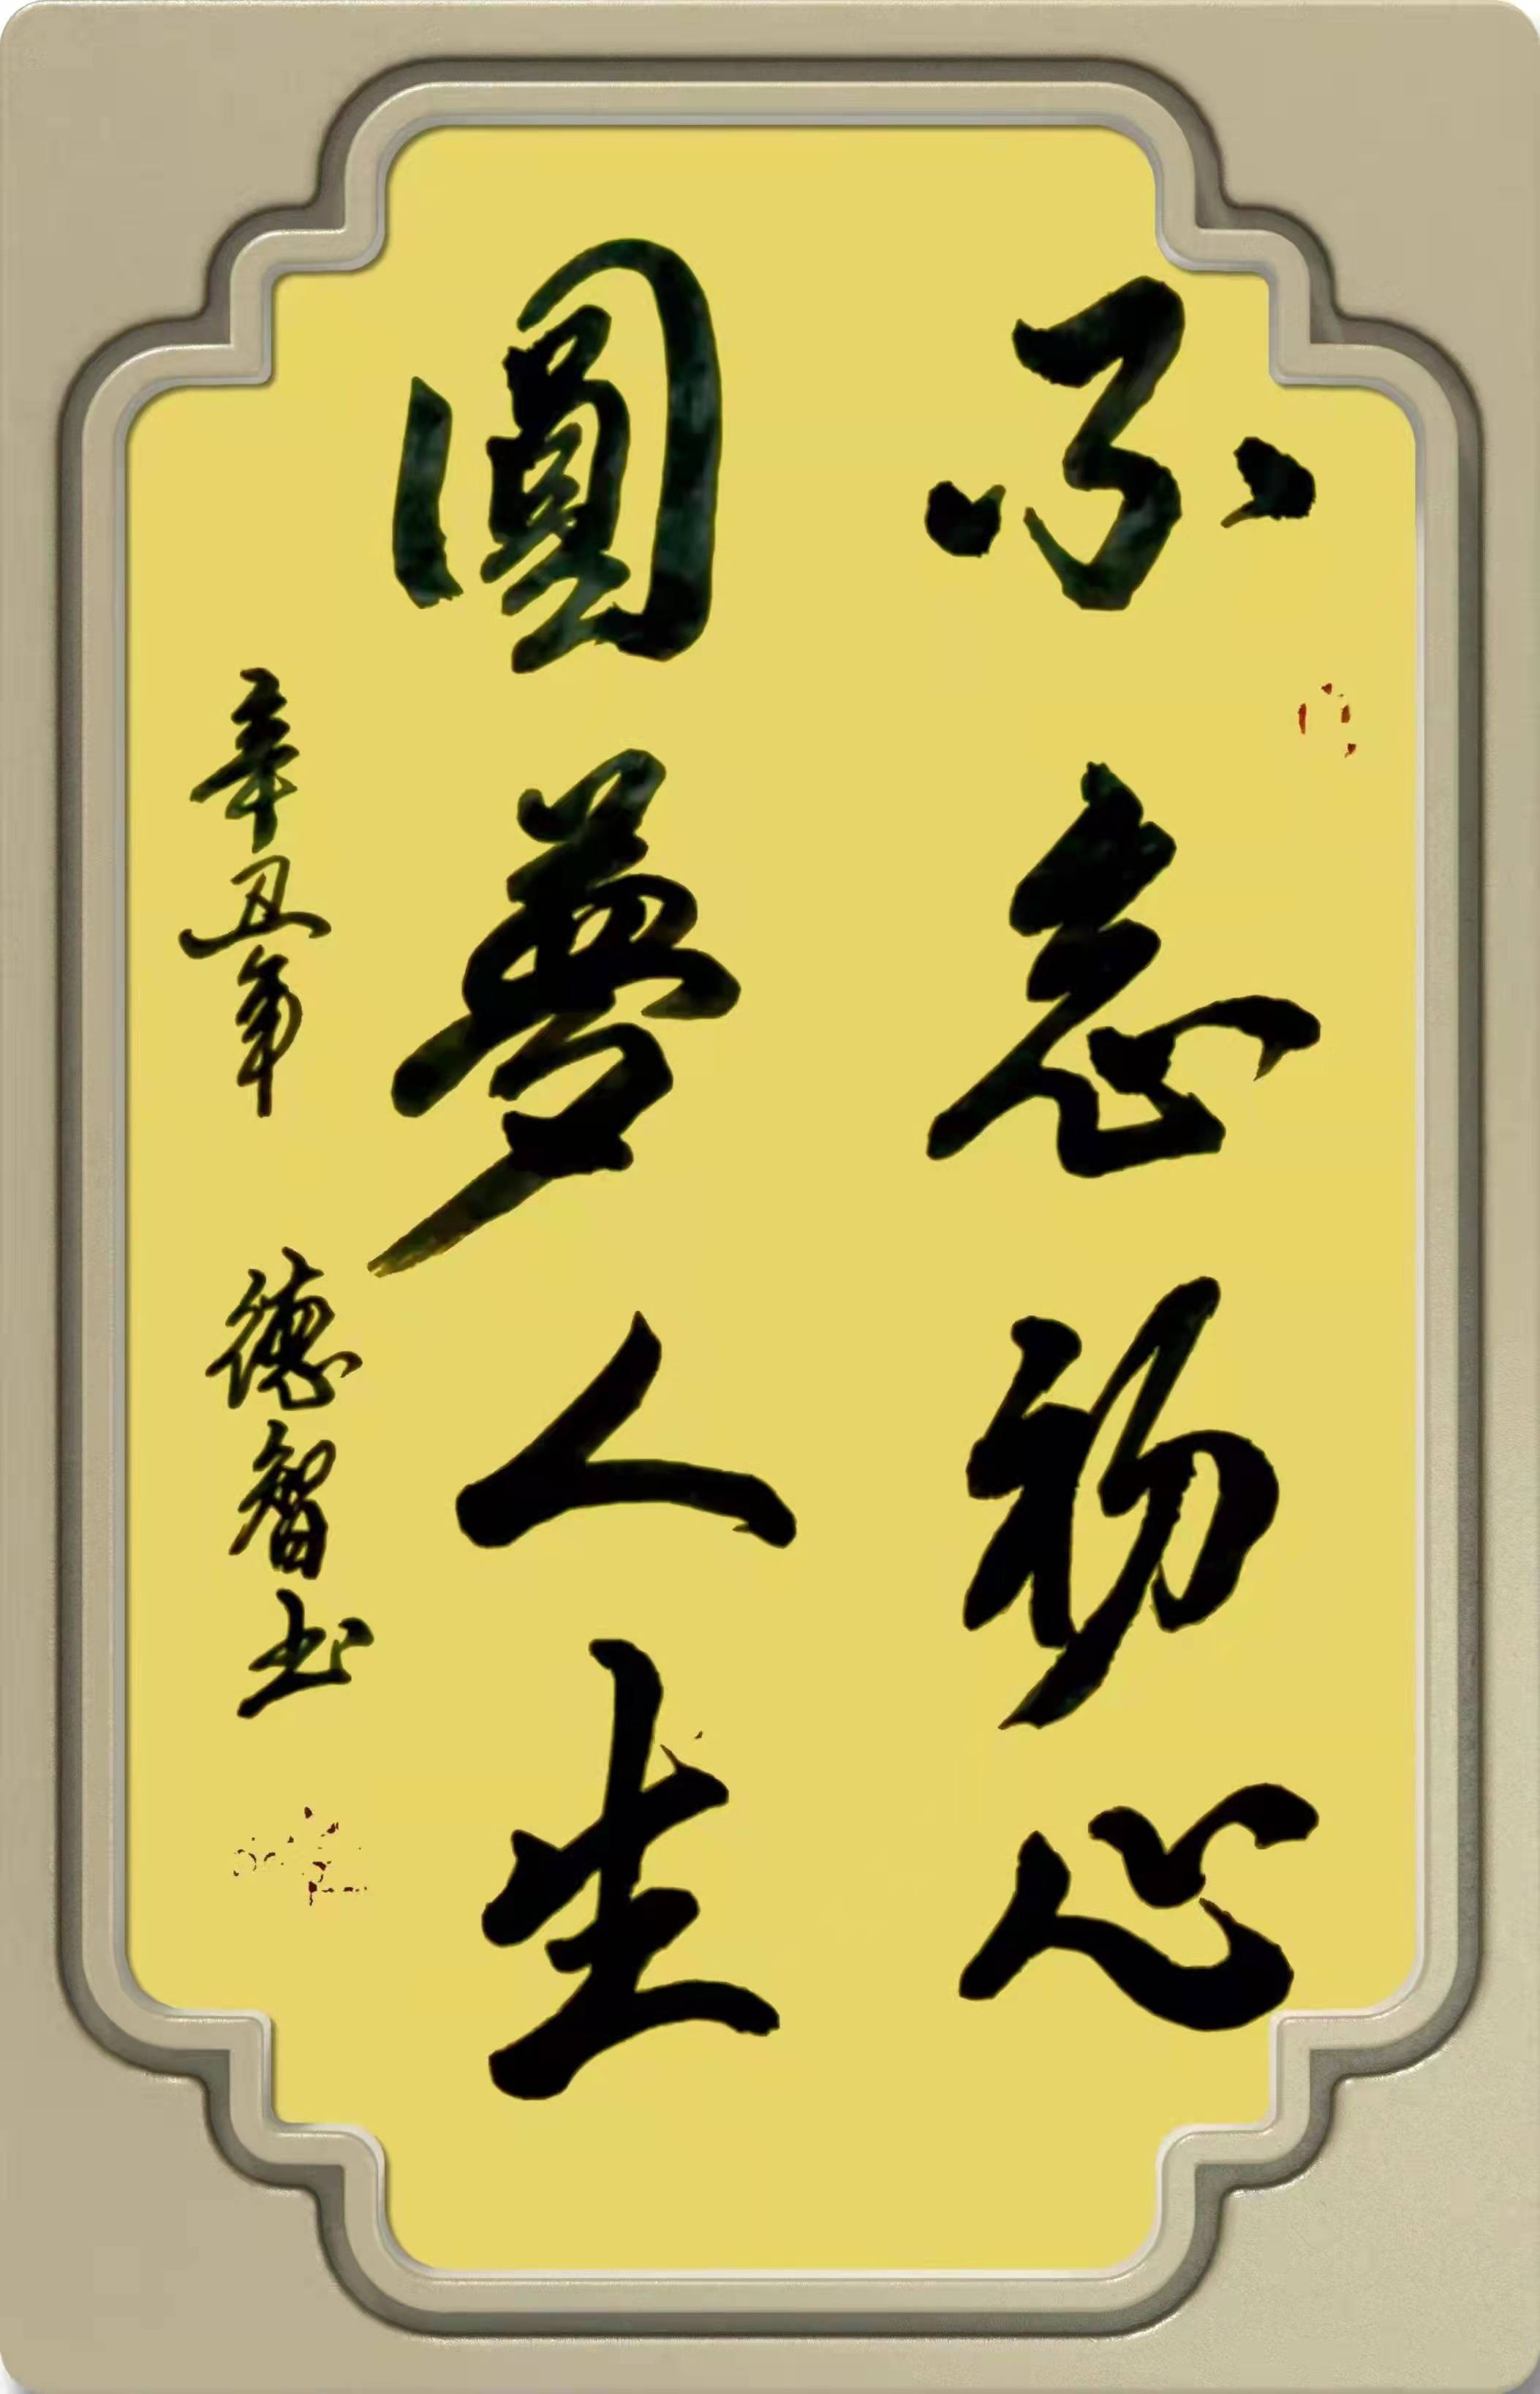 不忘初心
圓夢人生
辛丑年 德智书